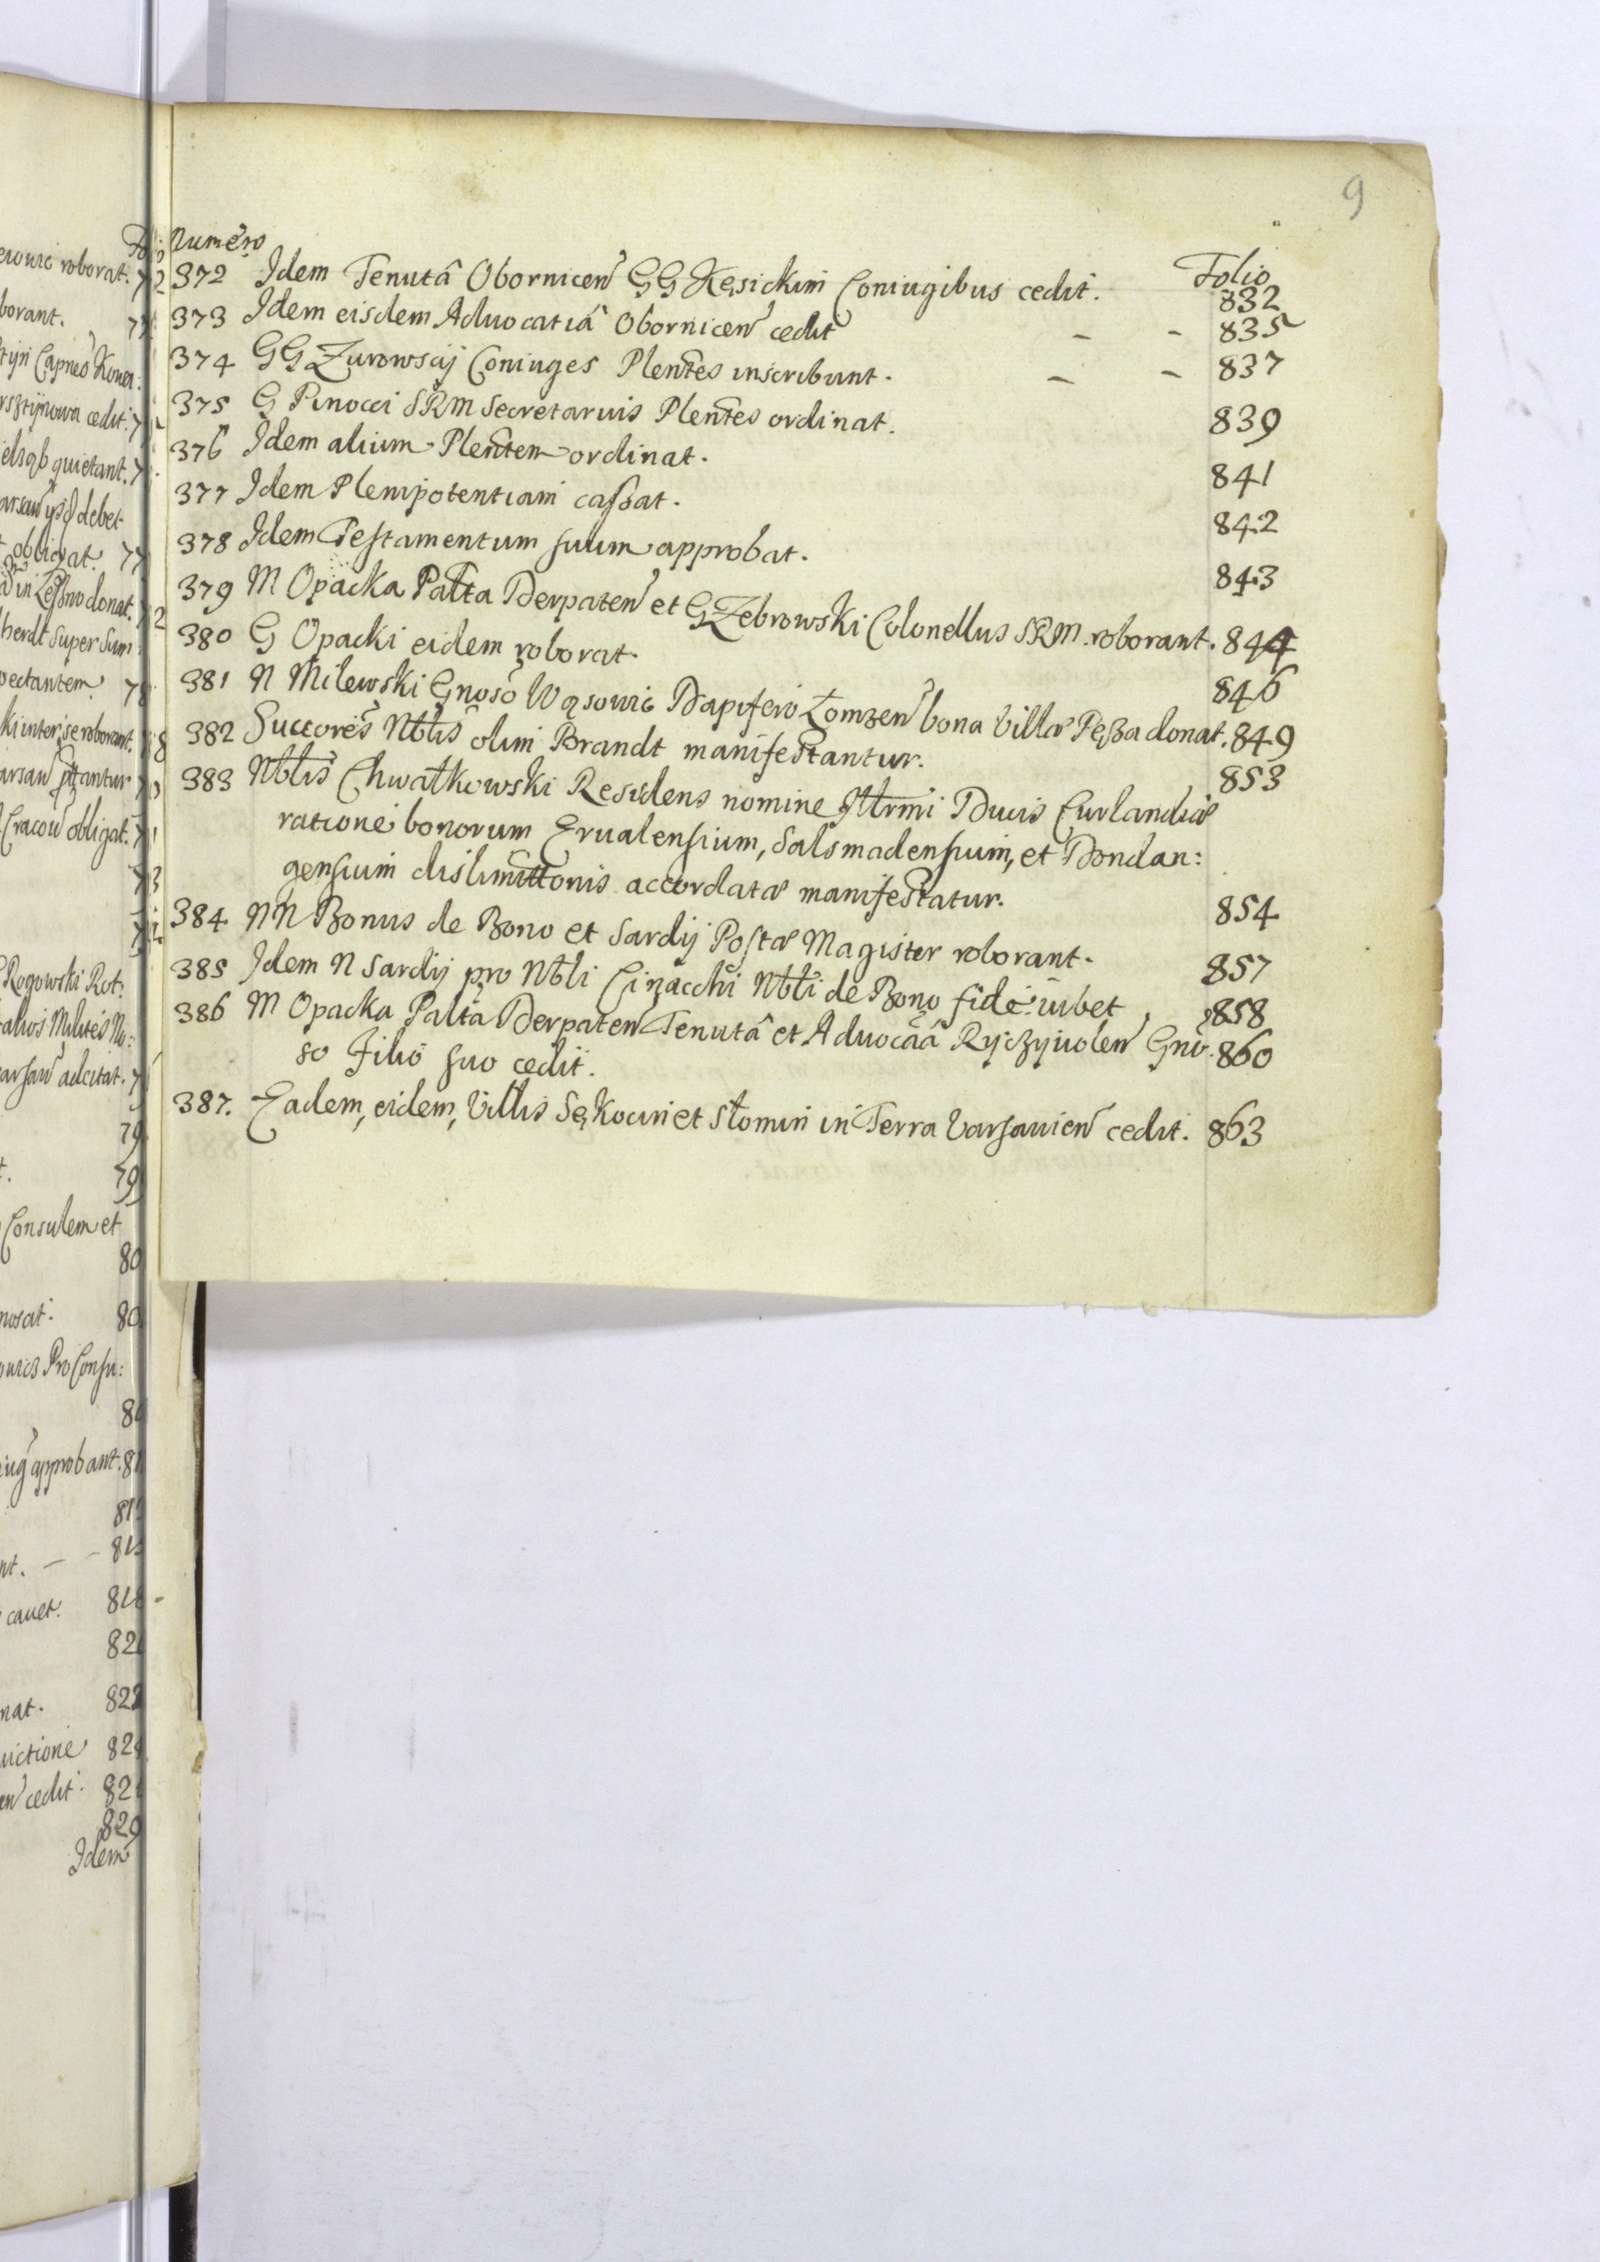 9
Numero Folio
372 Idem Tenutâ Obornicen GG Kęsickim Coniugibus cedit. 832
373 Idem eisdem Aduocatiâ Obornicen cedit - - 835
374 GG Zurowscij Coniuges Plentes inscribunt. - - 837
375 G Pinocci SRM Secretarius Plentes ordinat. 839
376 Idem alium Plentem ordinat. 841
377 Idem Plenipotentiam cassat. 842
378 Idem Testamentum suum approbat. 843
379 M Opacka Palta Derpaten et G Zebrowski Colonellus SRM roborant. 844
380 G Opacki eidem roborat. 846
381 N Milewski Gnoso Wąsowic Dapifero Łomzen bona Villæ Pęsza donat. 849
382 Succores Nblis olim Brandt manifestantur. 853
383 Nblis Chwałkowski Residens nomine Illrmi Ducis Curlandiæ
ratione bonorum Erualensium, Salsmadensium, et Dondan:
gensium dislimittonis accordatæ manifestatur. 854
384 NN Bonus de Bono et Sardij Postæ Magister roborant. 857
385 Idem N Sardij pro Nbli Cinacchi Nbli de Bono fide iubet 858
386 M Opacka Palta Derpaten Tenutâ et Aduocââ Ryczyuolen Gno: 860
so Filio suo cedit.
387. Eadem, eidem, Villis Sękocin et Słomin in Terra Varsauien cedit. 863
roborat.
borant.
cedit.
quietant.
debet
donat.
Super Sum
roborant.
obligat.
Rogowski Rot:
alios Milites
adcitat.
79
79
Consulem et
80
80
Pro Consu:
approbant.
cauet.
nat.
cedit.
829
Idem